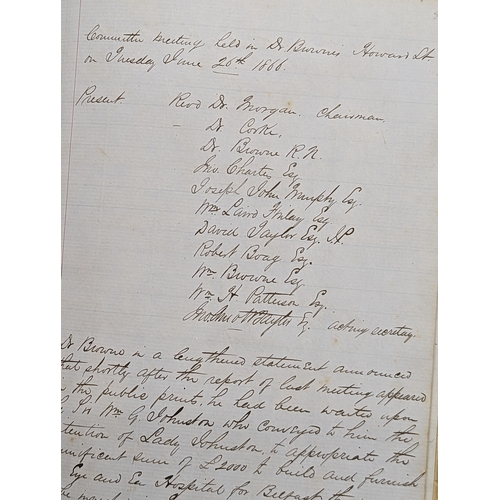 Committee Meeting held in Dr Brownes Howard St
on Tuesday June 26th 1866.
Present. Revd Dr. Morgan. Chairman.
Dr. Corke.
Dr. Browne R.N.
Jno. Charters Esq
Joseph John Murphy Esq.
Wm Laird Finlay Esq
David Taylor Esq. J.P.
Robert Boag Esq.
Wm Browne Esq.
Wm H. Patterson Esq.
Taylor Esq. acting secretary.
Dr Browne in a lengthened statement announced
that shortly after the report of last meeting appeared
in the public prints, he had been waited upon
Sir Wm G. Johnston who conveyed to him the
intention of Lady Johnston, to appropriate the
munificent sum of £2000 to build and furnish
Eye and Ear Hospital for Belfast